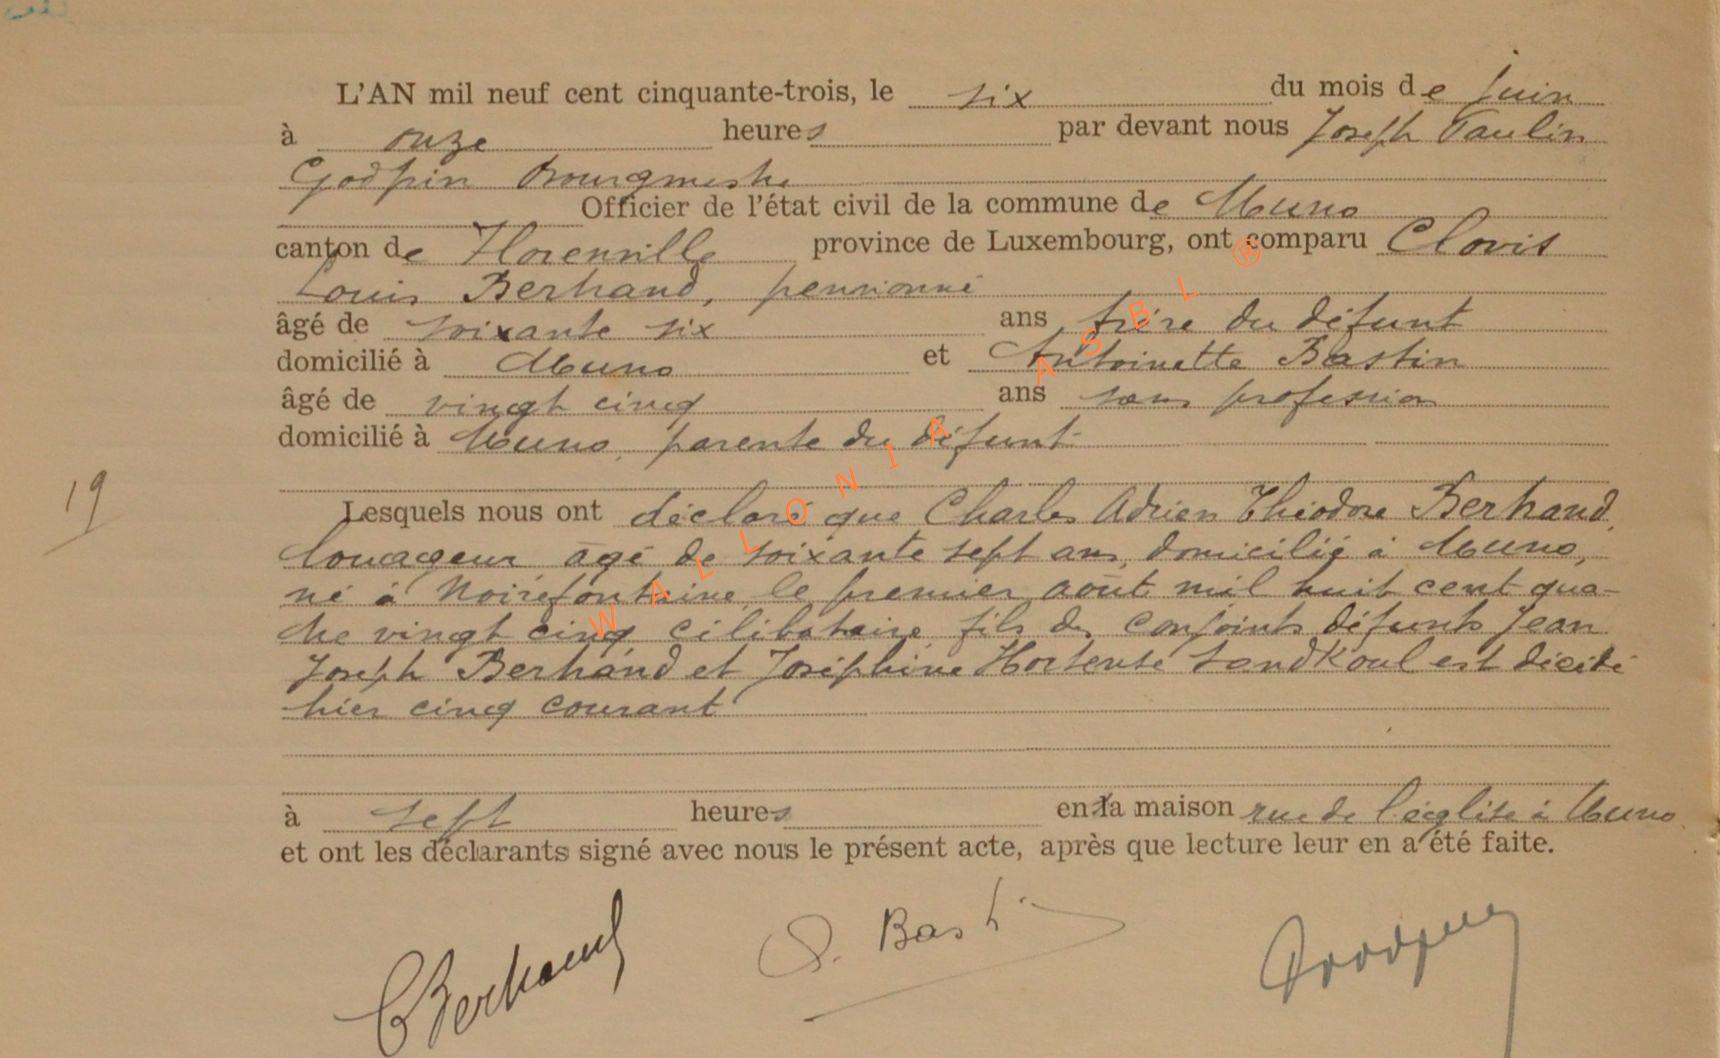 L'AN mil neuf cent cinquante-trois, le six du mois de juin
à onze heures par devant nous Joseph Paulin
Godfrin Bourgmestre
Officier de l'état civil de la commune de Muno
canton de Florenville province de Luxembourg, ont comparu Clovis
Louis Bertrand, pensionné
âgé de soixante six ans frère du défunt
domicilié à Muno et Antoinette Bastin
âgé de vingt cinq ans sans profession
domicilié à Muno, parente du défunt
19
Lesquels nous ont déclaré que Charles Adrien Théodore Bertrand,
louageur, âgé de soixante sept ans, domicilié à Muno,
né à Noirefontaine, le premier août mil huit cent qua-
tre vingt cinq célibataire, fils des conjoints défunts Jean
Joseph Bertrand et Joséphine Hortense Sandkoul est décédé
hier cinq courant
à sept heures en la maison rue de l'église à Muno
et ont les déclarants signé avec nous le présent acte, après que lecture leur en a été faite.
C Bertrand A. Bastin Godfrin
WALLONIA ASBL ®